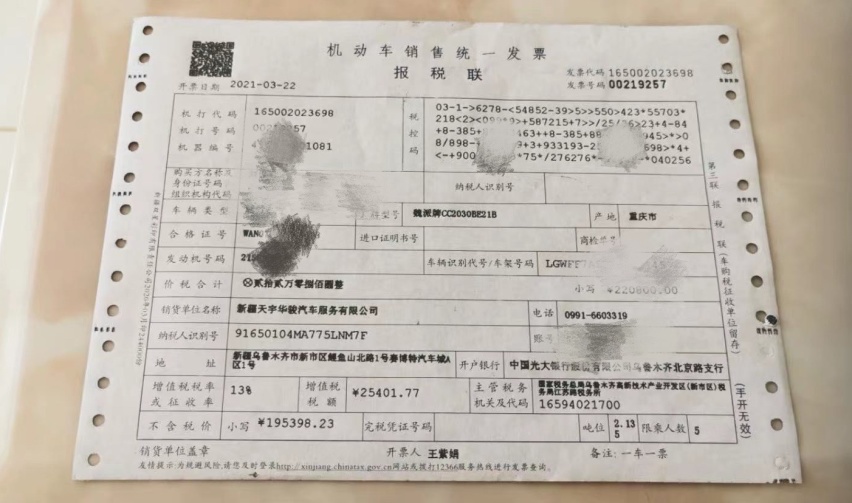 机动车销售统一发票
报税联
开票日期 2021-03-22
发票代码 165002023698
发票号码 00219257
机打代码 165002023698
机打号码 257
机器编号 081
税控码
03-1->6278-<54852-39>5>>550>423*55703*
购买方名称及
身份证号码
组织机构代码
纳税人识别号
车辆类型
魏派牌CC2030BE21B
产地 重庆市
合格证号
进口证明书号
商检单号
发动机号码
车辆识别代号/车架号码 LGWFF
价税合计 ⊗贰拾贰万零捌佰圆整 小写 ¥220800.00
销货单位名称 新疆天宇华骏汽车服务有限公司 电话 0991-6603319
纳税人识别号 91650104MA775LNM7F 账号
地址 新疆乌鲁木齐市新市区鲤鱼山北路1号赛博特汽车城A
区1号
开户银行 中国光大银行股份有限公司乌鲁木齐北京路支行
增值税税率
或征收率 13%
增值税
税额 ¥25401.77
主管税务
机关及代码
国家税务总局乌鲁木齐高新技术产业开发区(新市区)税
务局江苏路税务所
16594021700
不含税价 小写 ¥195398.23 完税凭证号码 吨位 2.13
5 限乘人数 5
销货单位盖章 开票人 王紫娟 备注:一车一票
友情提示:为规避风险,请您及时登录http://xinjiang.chinatax.gov.cn网站或拨打12366服务热线进行发票查询。
第三联 报税联 (车购税征收单位留存)
(手开无效)